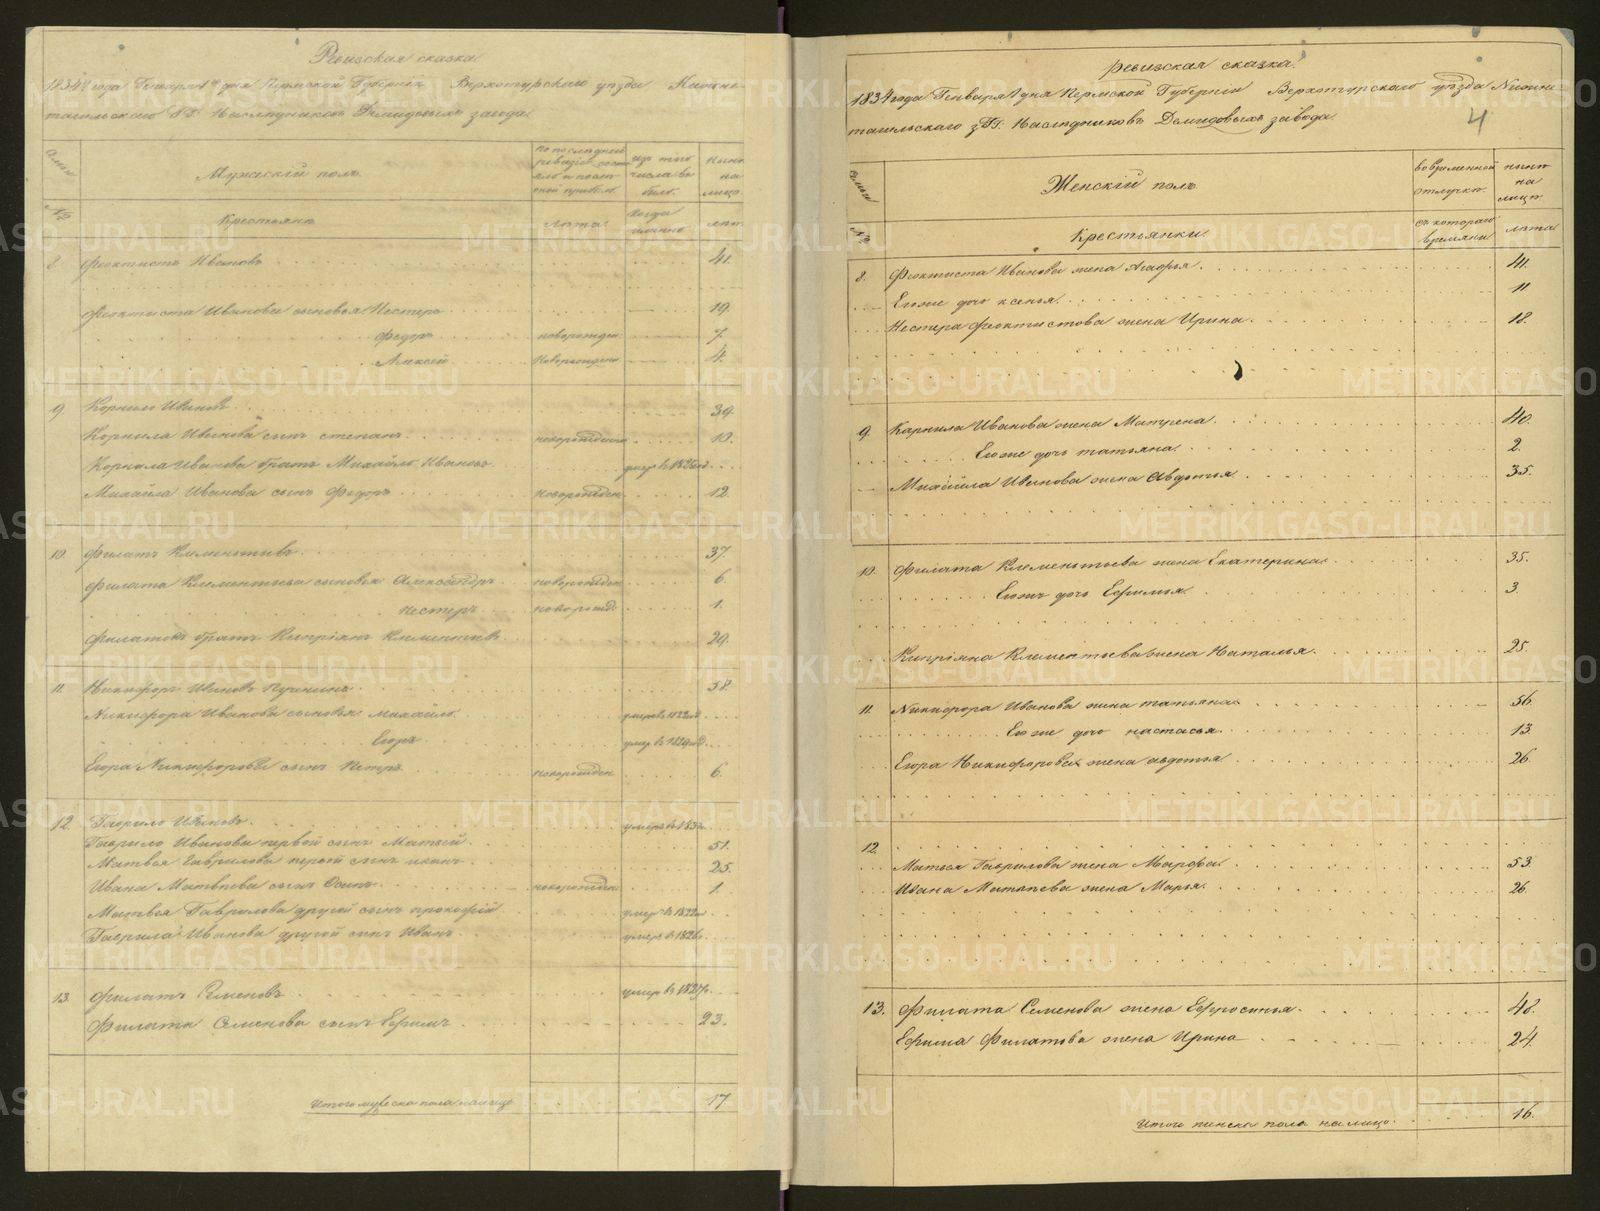 Ревизская сказка
1834 года Генваря 1 дня Пермской Губернiи Верхотурскаго уѣзда Нижне-
тагильскаго Гг. Наслѣдниковъ Демидовыхъ завода
Семьи
Мужескiй полъ
по послѣдней ревизiи состояло и послѣ оной прибыло
изъ того числа выбыло
нынѣ на лицо
№
Крестьяне
лѣта
когда именно
лѣта
8. Феоктистъ Ивановъ 41.
Феоктиста Иванова сыновья Нестеръ 19
Федоръ новорожден. 7.
Алексей новорожден 4.
9. Корнило Ивановъ 39.
Корнила Иванова сынъ степанъ новорожден 10.
Корнила Иванова братъ Михайло Ивановъ умер в 1825 год
Михайла Иванова сынъ Федоръ новорожден 12.
10. Филатъ Клементьевъ 37.
Филата Клементьева сыновья Александръ новорожден 6.
нестеръ новорожд. 1.
Филатовъ братъ Кипрiянъ Клементьевъ 29.
11. Никифоръ Ивановъ 58.
Никифора Иванова сыновья михайло умер в 1822 год
Егоръ умер в 1829 год
Егора Никифорова сынъ Петръ новорожден 6.
12. Гаврило Ивановъ умеръ в 183
Гаврило Иванова первой сынъ Матвей 51.
Матвея Гаврилова первой сынъ иванъ 25.
Ивана Матвѣева сынъ Осипъ новорожден 1.
Матвея Гаврилова другой сынъ прокофiй умер в 1822
Гаврила Иванова другой сынъ Иванъ умеръ в 1826
13. Филатъ Семеновъ умер в 1827
Филата Семенова сынъ Ефимъ 23.
Итого мужеска пола налицо 17.
ревизская сказка.
1834 года Генваря 1 дня Пермской Губернiи Верхотурскаго уѣзда Нижне
тагильскаго Гг. Наслѣдниковъ Демидовыхъ завода
4
Семьи
Женскiй полъ
во временной отлучкѣ
нынѣ на лицо
№
Крестьянки
съ котораго времяни
лѣта
8. Феоктиста Иванова жена Агафья 41.
Егоже дочь ксенья 11
Нестера феоктистова жена Ирина 18.
9. Карнила Иванова жена Матрена 40.
Егоже дочь татьяна 2.
Михайла Иванова жена Авдотья 35.
10. Филата Клементьева жена Екатерина 35.
Егоже дочь Ефимья 3.
Кипрiяна Клементьева жена Наталья 25.
11. Никифора Иванова жена татьяна 56.
Егоже дочь настасья 13.
Егора Никифорова жена авдотья 26.
12.
Матвея Гаврилова жена Марфа 53.
Ивана Матвѣева жена Марья 26.
13. Филата Семенова жена Ефросинья 48.
Ефима Филатова жена Ирина 24.
Итого женска пола налицо 16.
METRIKI.GASO-URAL.RU